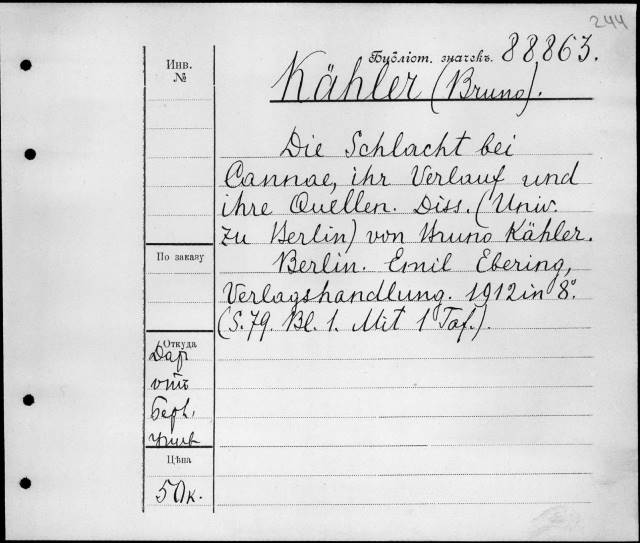 244
Бубліот. значекъ. 88863.
Kähler (Bruno).
Инв.
№
Die Schlacht bei
Cannae, ihr Verlauf und
ihre Quellen. Diss. (Univ.
zu Berlin) von Bruno Kähler.
Berlin. Emil Ebering,
Verlagshandlung. 1912 in 8°.
(S. 79. Bl. 1. Mit 1 Taf.).
По заказу
Откуда
Дар
отъ
Берл.
унив
Цѣна
50 к.